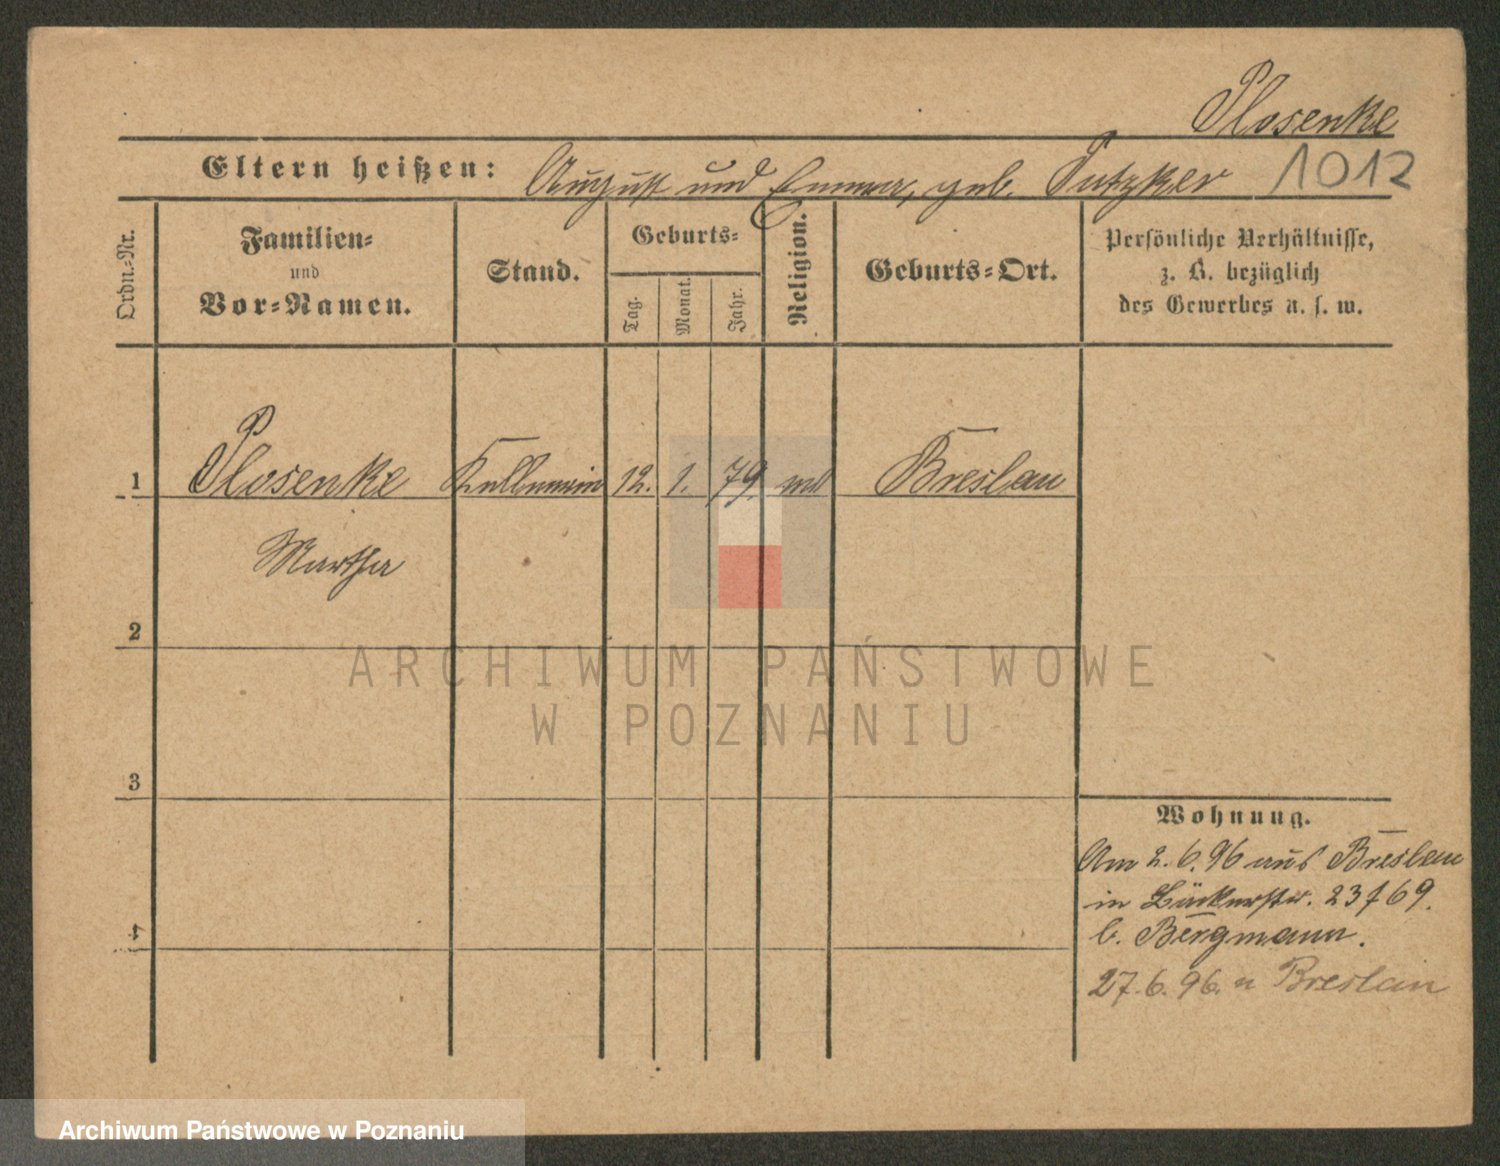 Plosenke
Eltern heißen: August und Emma, geb. Putzker 1012
Ordn.-Nr.
Familien-
und
Vor-Namen.
Stand.
Geburts-
Tag.
Monat.
Jahr.
Religion.
Geburts-Ort.
Persönliche Verhältnisse,
z. B. bezüglich
des Gewerbes u. s. w.
1 Plosenke Kellnerin 12. 1. 79. Breslau
Martha
2
3
4
Wohnung.
Am 2.6.96 aus Breslau
in 23/69.
b. Bergmann.
27.6.96. n Breslau
ARCHIWUM PAŃSTWOWE
W POZNANIU
Archiwum Państwowe w Poznaniu